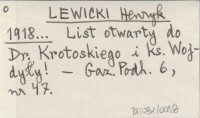 LEWICKI Henryk
1918... List otwarty do
Dr. Krotoskiego i ks. Woj-
dyły! – Gaz. Podh. 6,
nr 47.